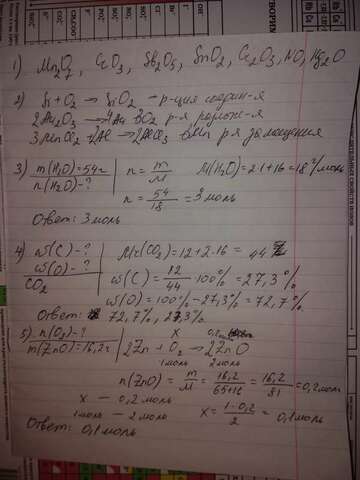 1) Mn₂O₇, CrO₃, Sb₂O₅, SnO₂, Cr₂O₃, NO, Hg₂O
2) Si + O₂ → SiO₂ – р-ция соедин-я
2Au₂O₃ → 4Au + 3O₂ р-я разлож-я
3MnCl₂ + 2Al → 2AlCl₃ + 3Mn р-я замещения
3) m(H₂O) = 54г n = m/M M(H₂O) = 2·1+16 = 18 г/моль
n(H₂O) - ? n = 54/18 = 3 моль
Ответ: 3 моль
4) ω(C) - ? Mr(CO₂) = 12 + 2·16 = 44
ω(O) - ? ω(C) = 12/44 · 100% = 27,3%
CO₂ ω(O) = 100% - 27,3% = 72,7%
Ответ: 72,7%, 27,3%
5) n(O₂) - ? x 0,2
m(ZnO) = 16,2г 2Zn + O₂ → 2ZnO
1моль 2моль
n(ZnO) = m/M = 16,2/65+16 = 16,2/81 = 0,2моль
x – 0,2 моль
1моль – 2 моль x = 1·0,2/2 = 0,1 моль
Ответ: 0,1 моль